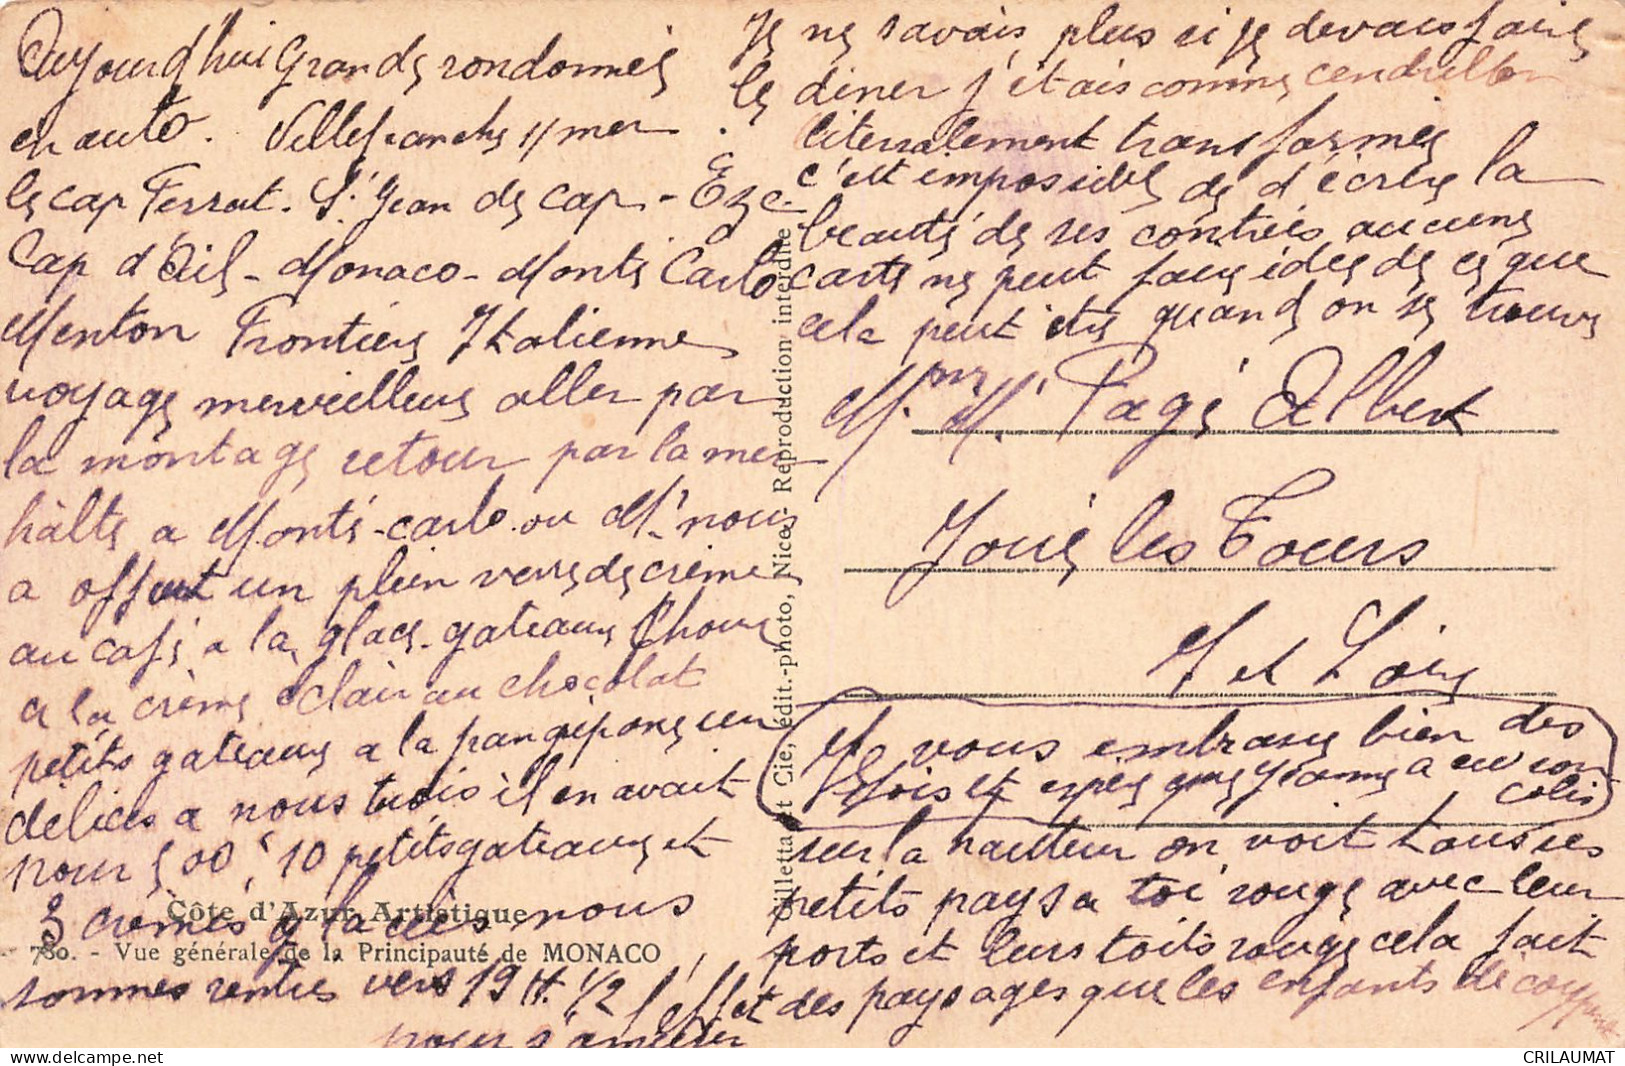 Aujourd'hui Grande rondonneé
en auto. Villefranche s/ mer.
le cap Ferrat. St Jean de Cap - Eze
Cap d'Ail - Monaco - Monte Carlo
Menton Frontière Italienne
voyage merveilleux aller par
la montage retour par la mer
halte a Monte-Carlo ou M. nous
a offert un plein verre de crème
au café a la glace. gateaux Choux
a la crème éclair au chocolat
petits gateaux a la frangipone un
délices a nous trois il en avait
pour 500, 10 petits gateaux et
3 crèmes glacées nous
sommes rentrés vers 19 H. 1/2
pour s'amuser
Je ne savais plus si je devais faire
le diner j'étais comme cendrillon
literralement transformée
c'est impossible de d'écrire la
beauté de ses contrées aucune
carte ne peut faire idée de ce que
cela peut être quand on se trouve
sur la hauteur on voit tous ses
petits pays a toi rouge avec leur
ports et leurs toits rouge cela fait
l'effet des paysages que les enfants découpent
Mr. M. Pagé Albert
Joué les Tours
I et Loire
Je vous embrasse bien des
fois et espère que Jeanne a eu son
colis
Côte d'Azur Artistique
780. - Vue générale de la Principauté de MONACO
Gilletta et Cie, édit.-photo, Nice - Reproduction interdite
CRILAUMAT